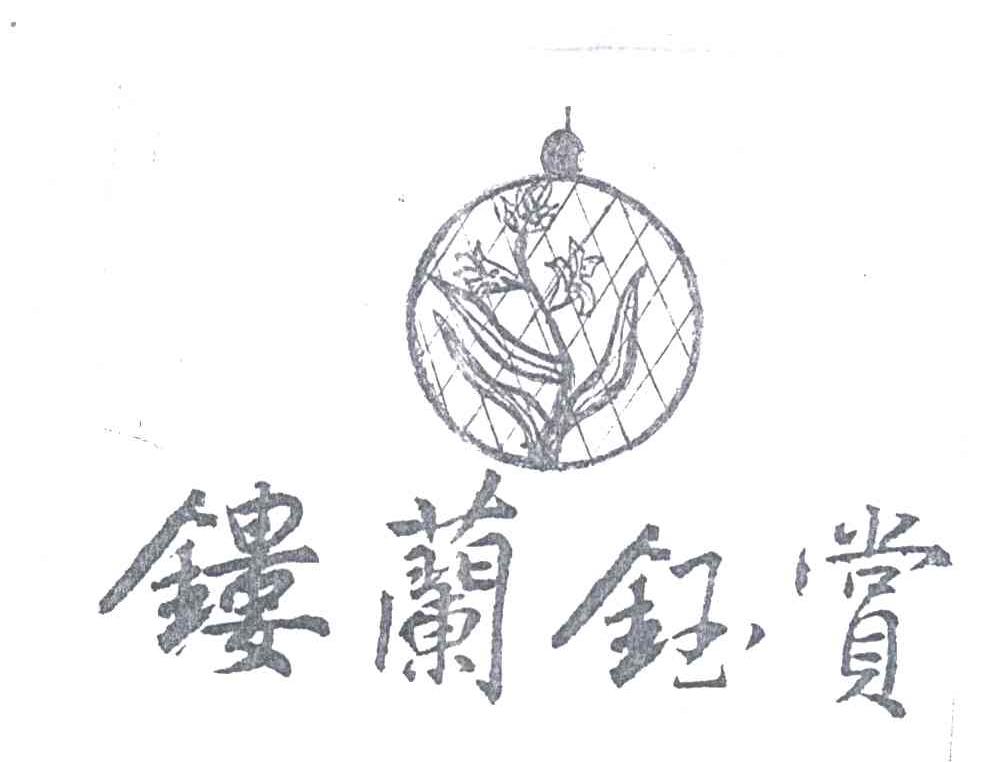 鏤蘭鈺賞